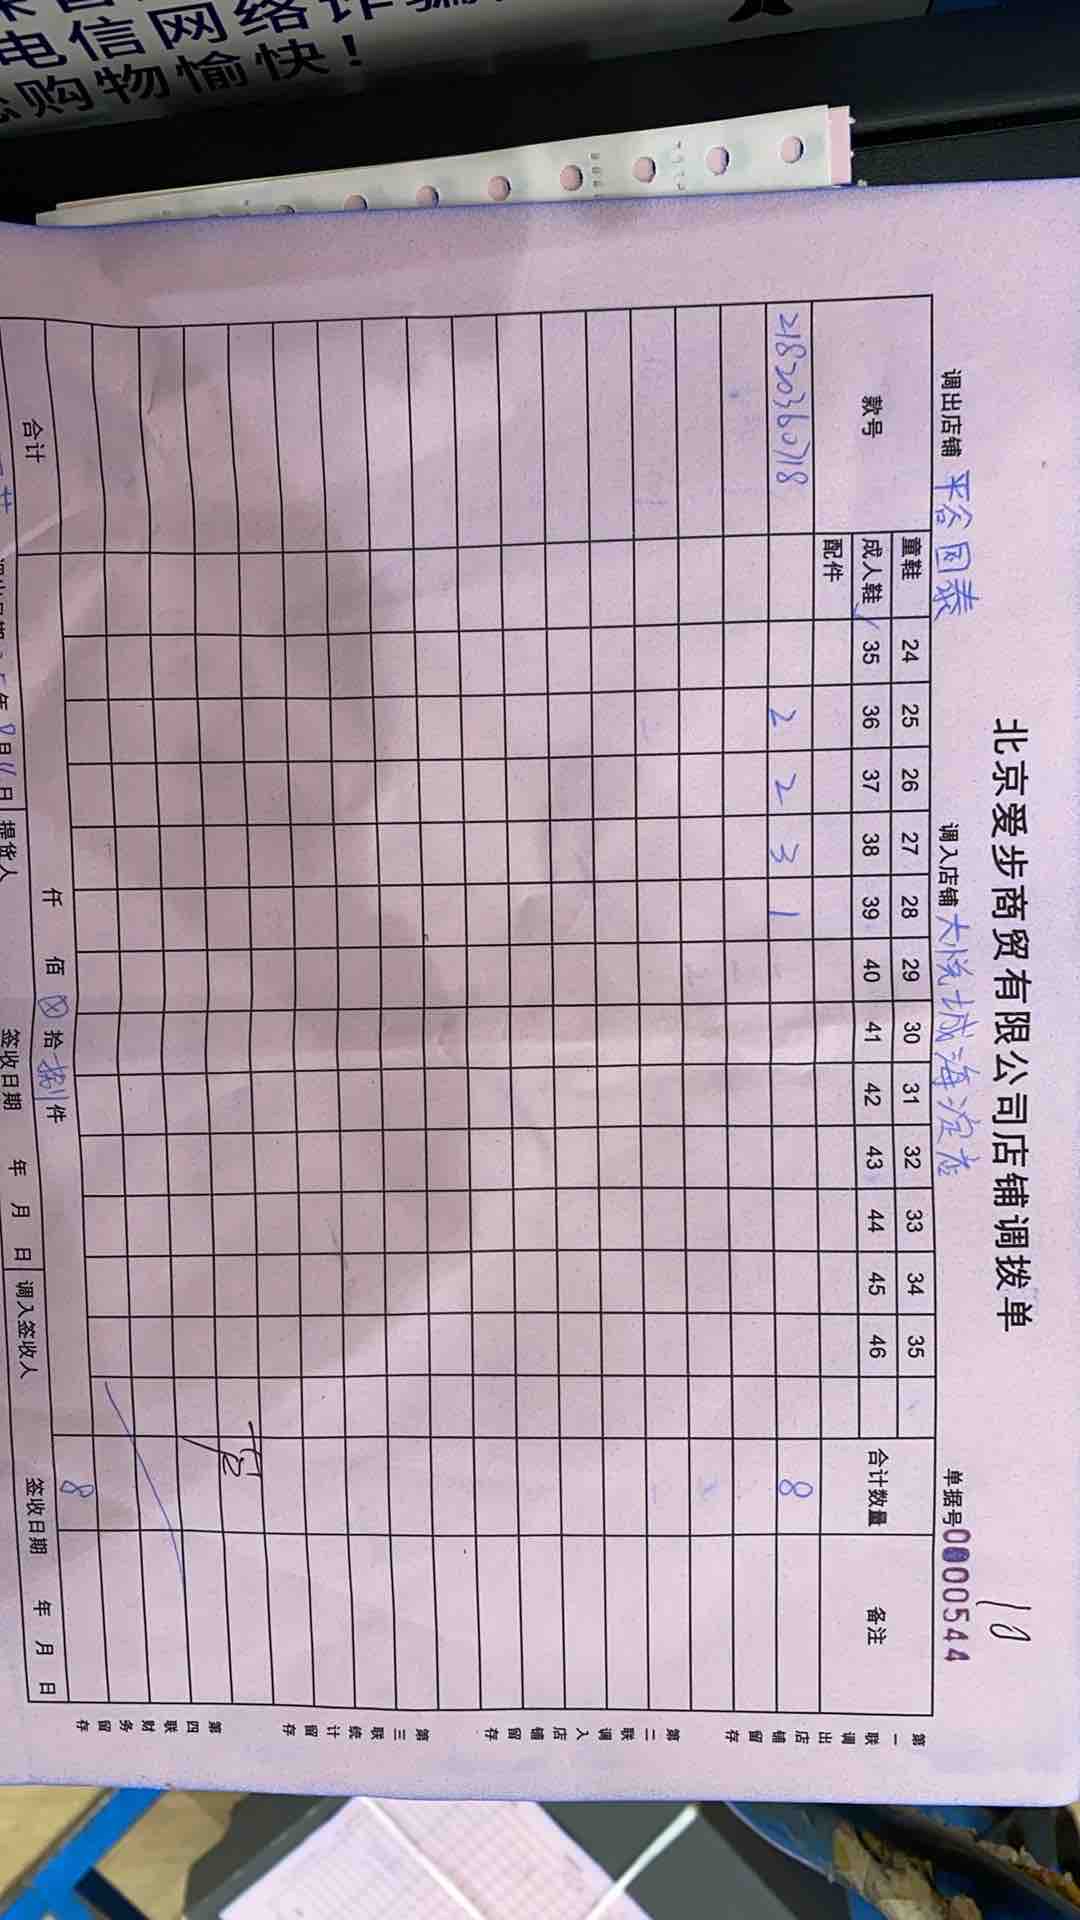 电信网络诈骗
购物愉快！
北京爱步商贸有限公司店铺调拨单
10
调出店铺 平谷国泰 调入店铺 大悦城海淀店 单据号0000544
款号 童鞋 24 25 26 27 28 29 30 31 32 33 34 35 合计数量 备注
成人鞋 35 36 37 38 39 40 41 42 43 44 45 46
配件
21820360718 2 2 3 1 8
合计 仟 佰 拾 捌 件 8
年 8 月 日 提货人 签收日期 年 月 日 调入签收人 签收日期 年 月 日
第一联调出店铺留存
第二联调入店铺留存
第三联统计留存
第四联财务留存